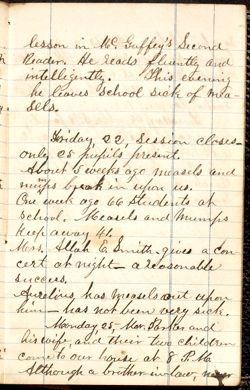 lesson in Mc Guffey's Second
Reader. He reads fluently and
intelligently. This evening
he leaves school sick of mea-
sels.
Friday 22, Session closes-
only 25 pupils present.
About 5 weeks ago measels and
mumps break in upon us.
One week ago 66 students at
School. Measels and Mumps
keep away 41.
Mrs. Allah E. Smith gives a con-
cert at night - a reasonable
success.
Aurelius has measels out upon
him - has not been very sick.
Monday 25, Mr. and
his wife, and their two children
come to our house at 8 P.M.
Although a brother-in-law,